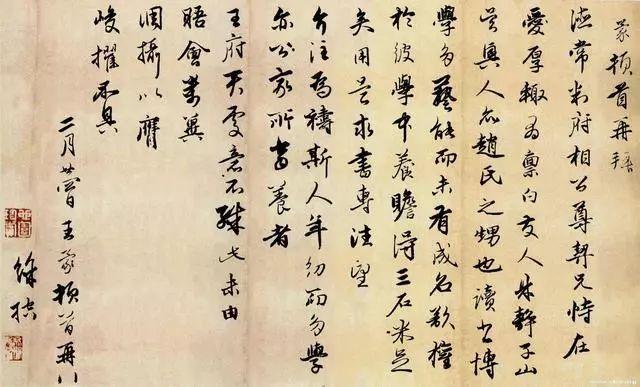 蒙頓首再拜
德常判府相公尊契兄恃在
愛厚輒有稟白友人朱靜子山
吳興人亦趙氏之甥也讀書博
學多藝能而未有成名欲權
於彼學中養贍得三石米足
矣用是求書專注望
介注為禱斯人年幼而多學
亦公家所當養者
王府天處意不殊此未由
晤會萬冀
調攝以膺
峻擢不具
二月王蒙頓首再拜
徐